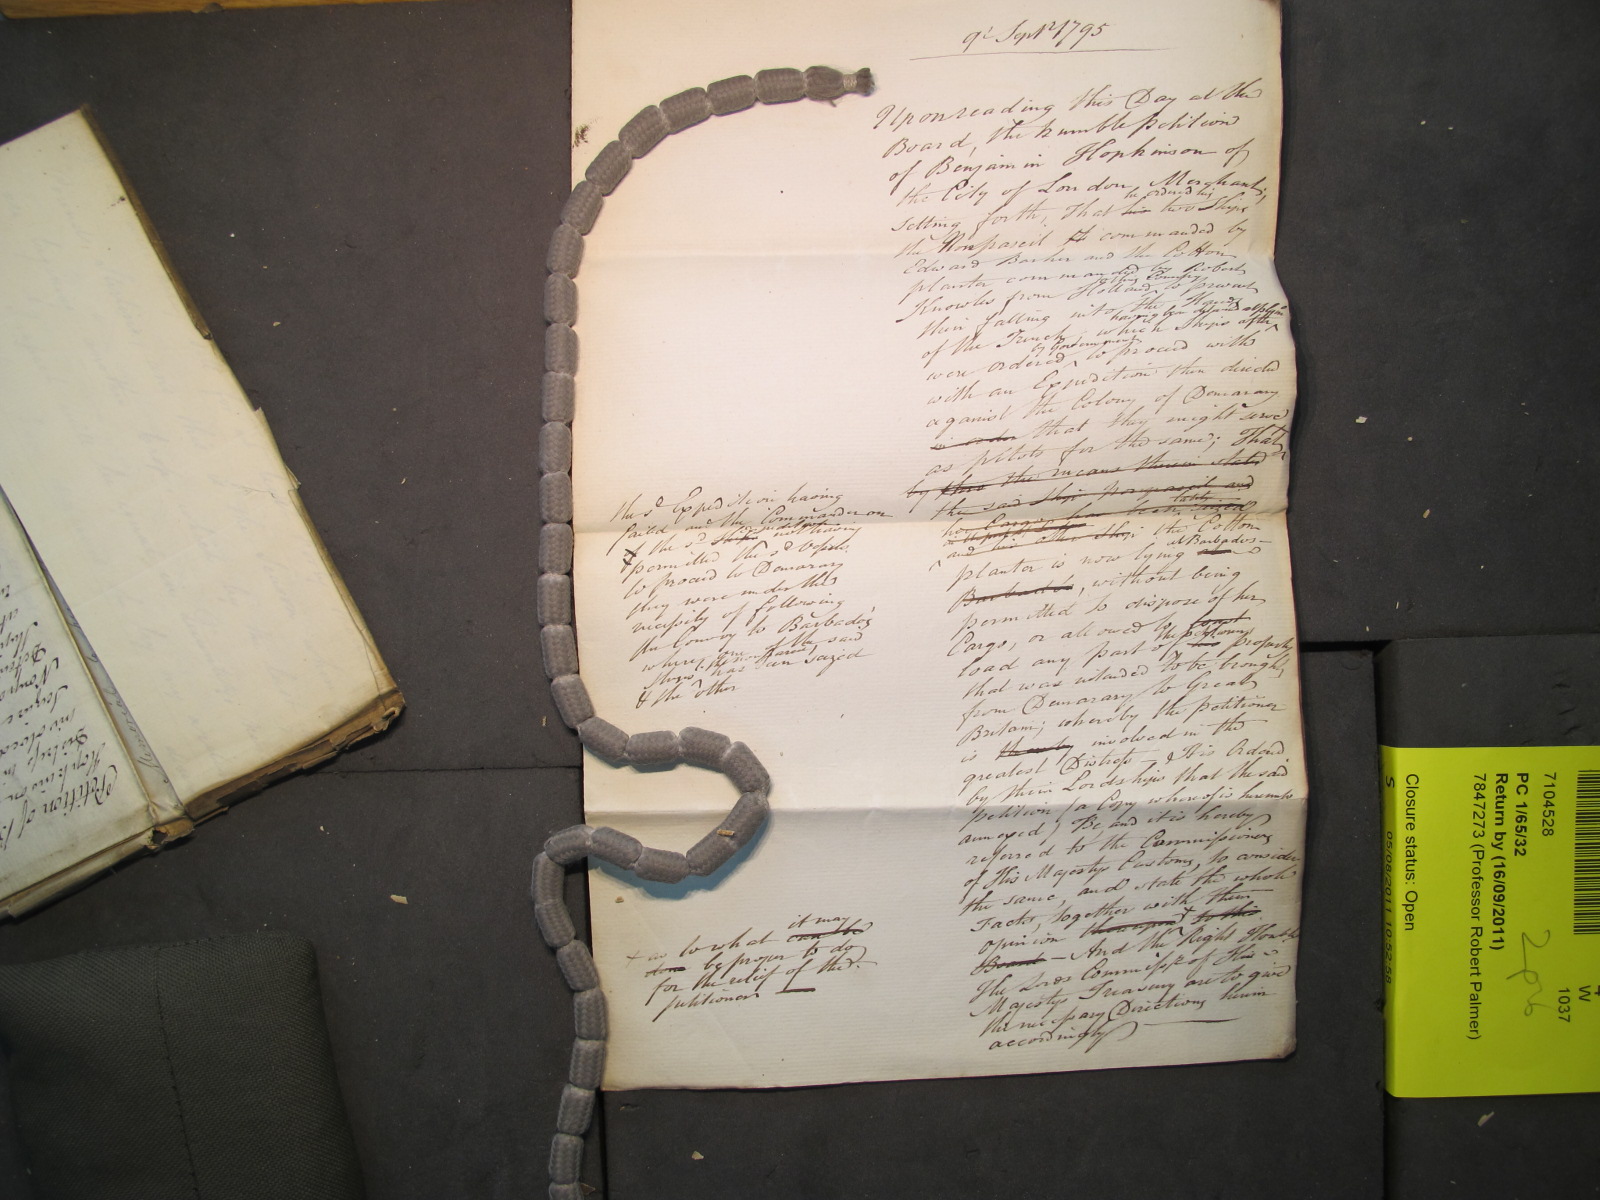 9th Septr 1795
Upon reading this Day at the
Board, the humble petition
of Benjamin Hopkinson of
the City of London, Merchant,
he ordered his
setting forth, That his two Ships
the Nonpareil commanded by
Edward Barker and the Cotton
planter commanded by Robert
Knowles from Holland to this Country to prevent
their falling into the Hands
having been
of the French, which Ships after
by Government
were ordered to proceed with
with an Expedition then directed
against the Colony of Demarary
in order that they might serve
as pilots for the same; That
by the means therein stated
the said Ship Nonpareil and
her Cargo has been seized
and his other Ship the Cotton
at Barbados
planter is now lying at
Barbados, without being
permitted to dispose of her
Cargo, or allowed to
load any part of his the petitioners property
that was intended to be brought
from Demarary to Great
Britain; whereby the petitioner
is thereby involved in the
greatest Distress – It is Ordered
by their Lordships that the said
petition (a Copy whereof is hereunto
annexed) Be, and it is hereby
referred to the Commissioners
of His Majestys Customs, to consider
the same, and state the whole
Facts, together with their
opinion thereupon to this
Board – And the Right Honble
the Lords Commissrs of His
Majestys Treasury are to give
the necessary Directions herein
accordingly
the sd Expedition having
failed and the Commander on
of the sd Ships not having
permitted the sd Vessels
to proceed to Demarary
they were under the
necessity of following
the Convoy to Barbados
where one of the said
Ships (the Nonpareil)
has been seized
& the other
+ as to what it may can be
done be proper to do
for the relief of the
petitioner
Petition of B
Hopkinson
7104528
PC 1/65/32
Return by (16/09/2011)
7847273 (Professor Robert Palmer)
Closure status: Open
S 05/08/2011 10:52:58
W
1037